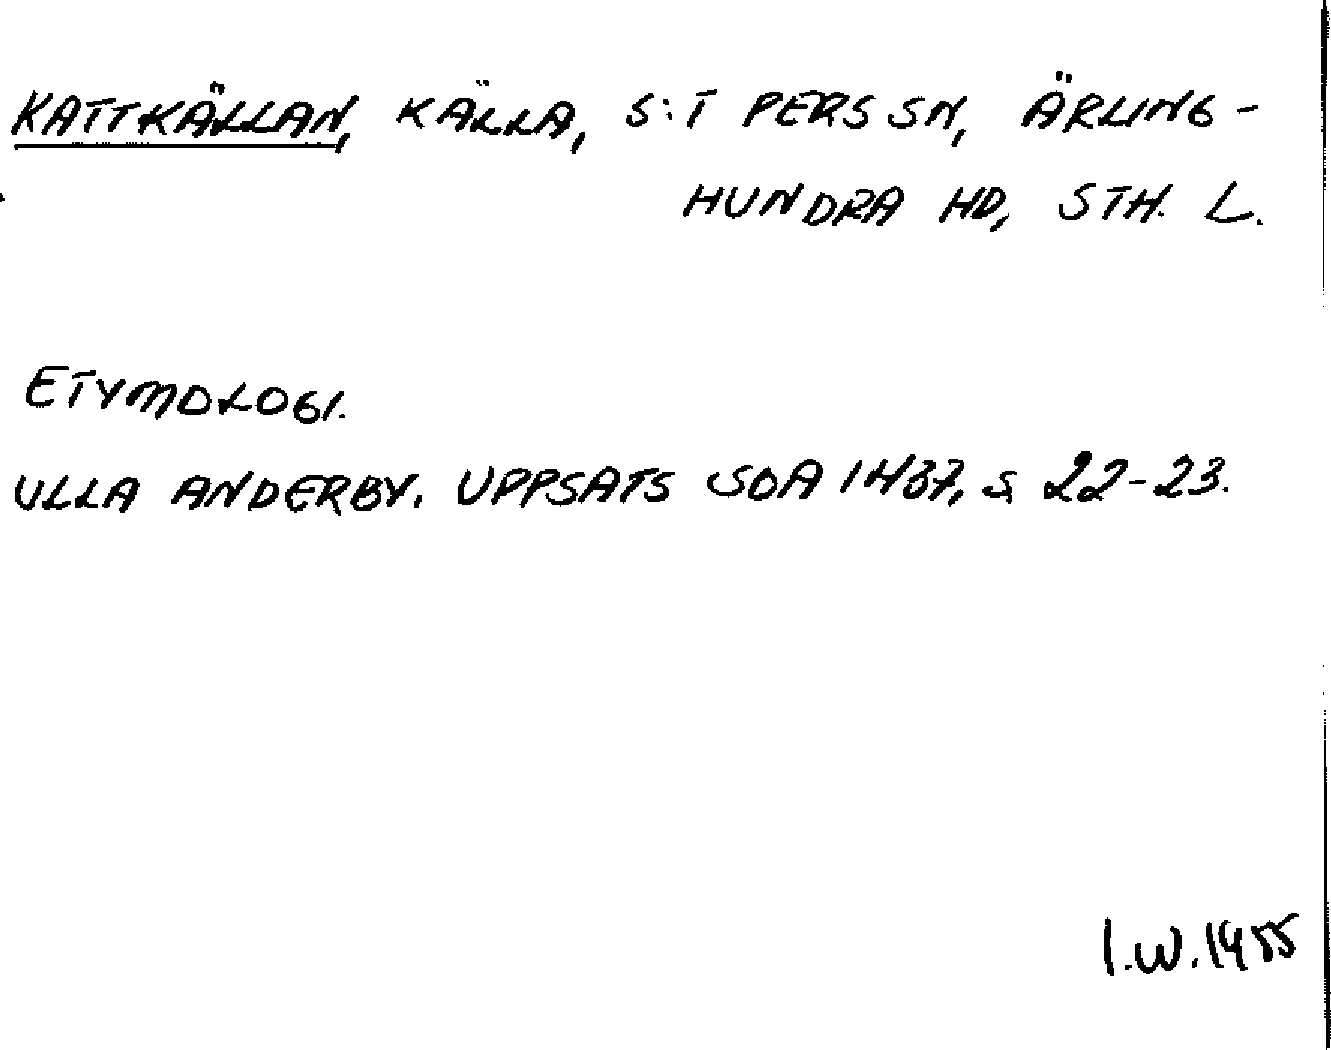 KATTKÄLLAN, KÄLLA, S:T PERS SN, ÄRLING-
HUNDRA HD, STH. L.
ETYMOLOGI.
ULLA ANDERBY. UPPSATS SOA 1437, S 22-23.
I.W. 1955